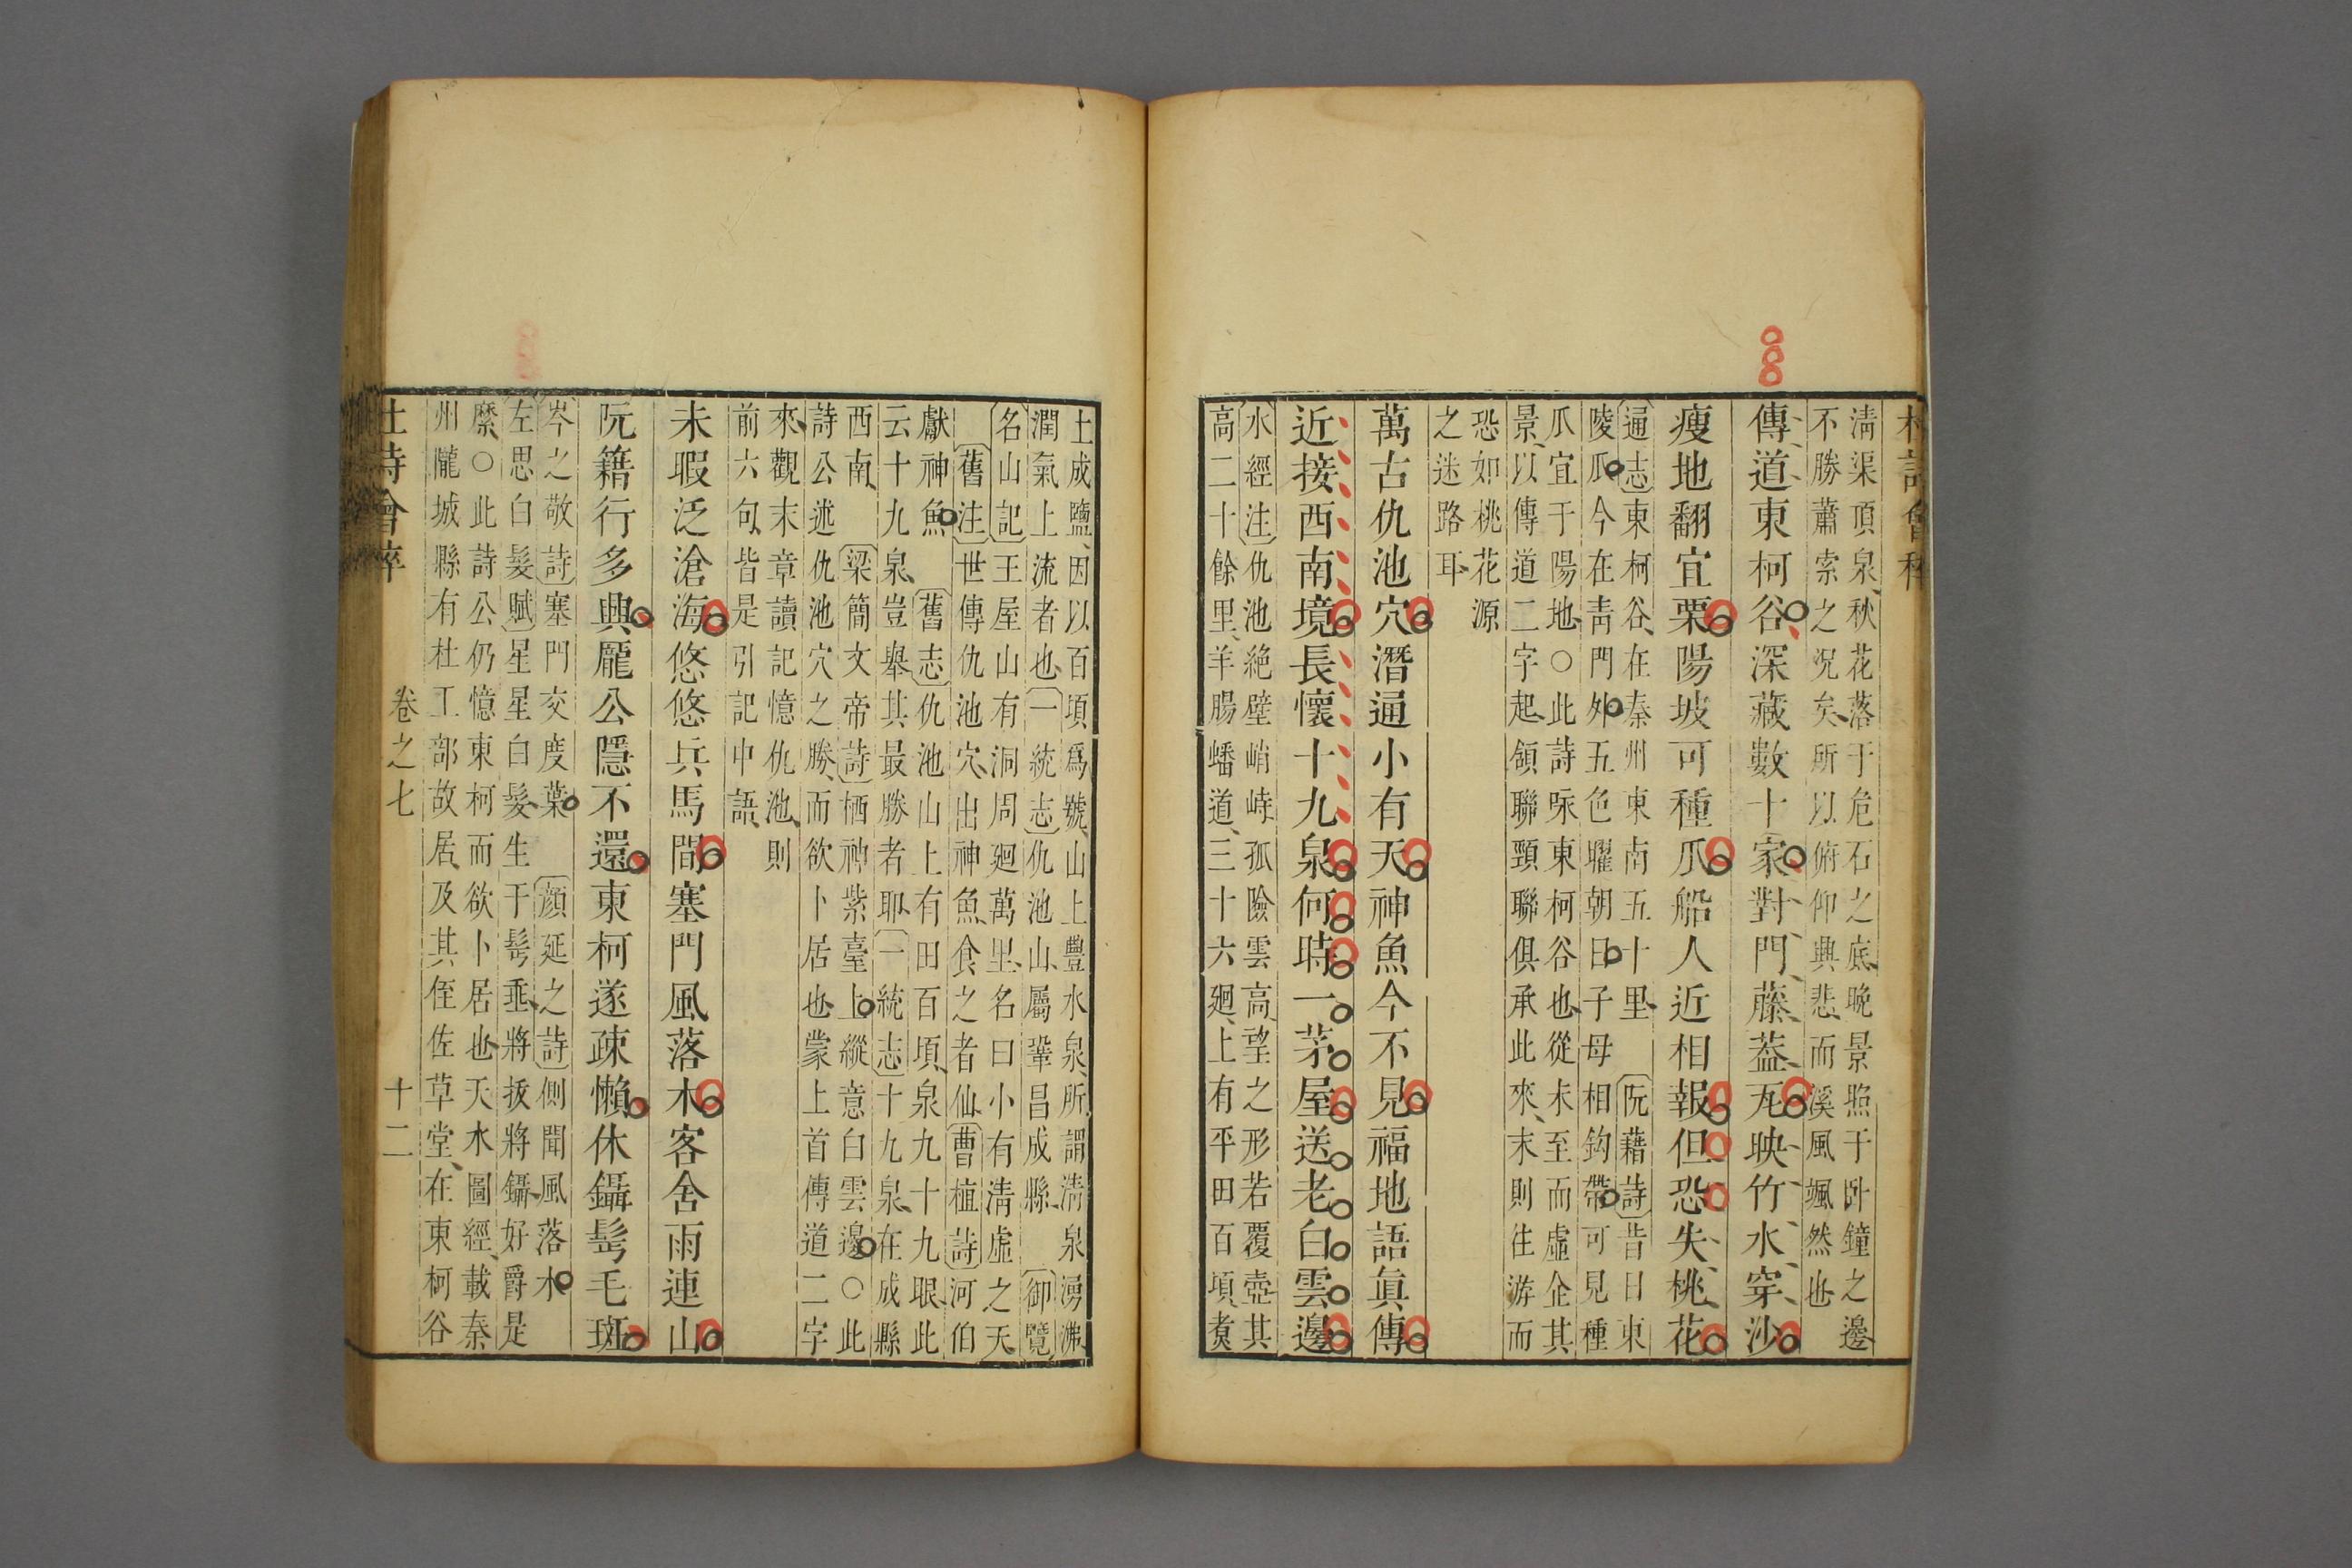 清渠頂泉秋花落于危石之底晚景照于卧鐘之邊
不勝蕭索之况矣所以俯仰興悲而溪風颯然也
傳道東柯谷深藏數十家對門藤葢瓦映竹水穿沙
瘦地翻宜粟陽坡可種瓜船人近相報但恐失桃花
通志東柯谷在秦州東南五十里 阮籍詩昔日東
陵瓜今在靑門外五色曜朝日子母相鈎帶可見種
瓜宜于陽地○此詩咏東柯谷也從未至而虛企其
景以傳道二字起領聯頸聯俱承此來末則往游而
恐如桃花源
之迷路耳
萬古仇池穴潛通小有天神魚今不見福地語眞傳
近接西南境長懷十九泉何時一茅屋送老白雲邊
水經注仇池絕壁峭峙孤險雲高望之形若覆壺其
高二十餘里羊腸蟠道三十六廻上有平田百頃煑
土成鹽因以百頃爲號山上豐水泉所謂淸泉湧沸
潤氣上流者也一統志仇池山屬鞏昌成縣 御覽
名山記王屋山有洞周廻萬里名曰小有淸虛之天
舊注世傳仇池穴出神魚食之者仙曹植詩河伯
獻神魚 舊志仇池山上有田百頃泉九十九眼此
云十九泉豈舉其最勝者耶一統志十九泉在成縣
西南 梁簡文帝詩栖神紫臺上縱意白雲邊○此
詩公述仇池穴之勝而欲卜居也蒙上首傳道二字
來觀末章讀記憶仇池則
前六句皆是引記中語
未暇泛滄海悠悠兵馬間塞門風落木客舍雨連山
阮籍行多興龎公隱不還東柯遂疎懶休鑷髩毛斑
岑之敬詩塞門交度葉 顔延之詩側聞風落木
左思白髮賦星星白髮生于髩垂將拔將鑷好爵是
縻○此詩公仍憶東柯而欲卜居也天水圖經載秦
州隴城縣有杜工部故居及其侄佐草堂在東柯谷
杜詩會稡 卷之七 十二